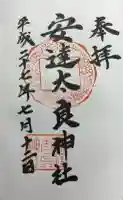 奉拝
安達太良神社
平成二十七年七月十二日